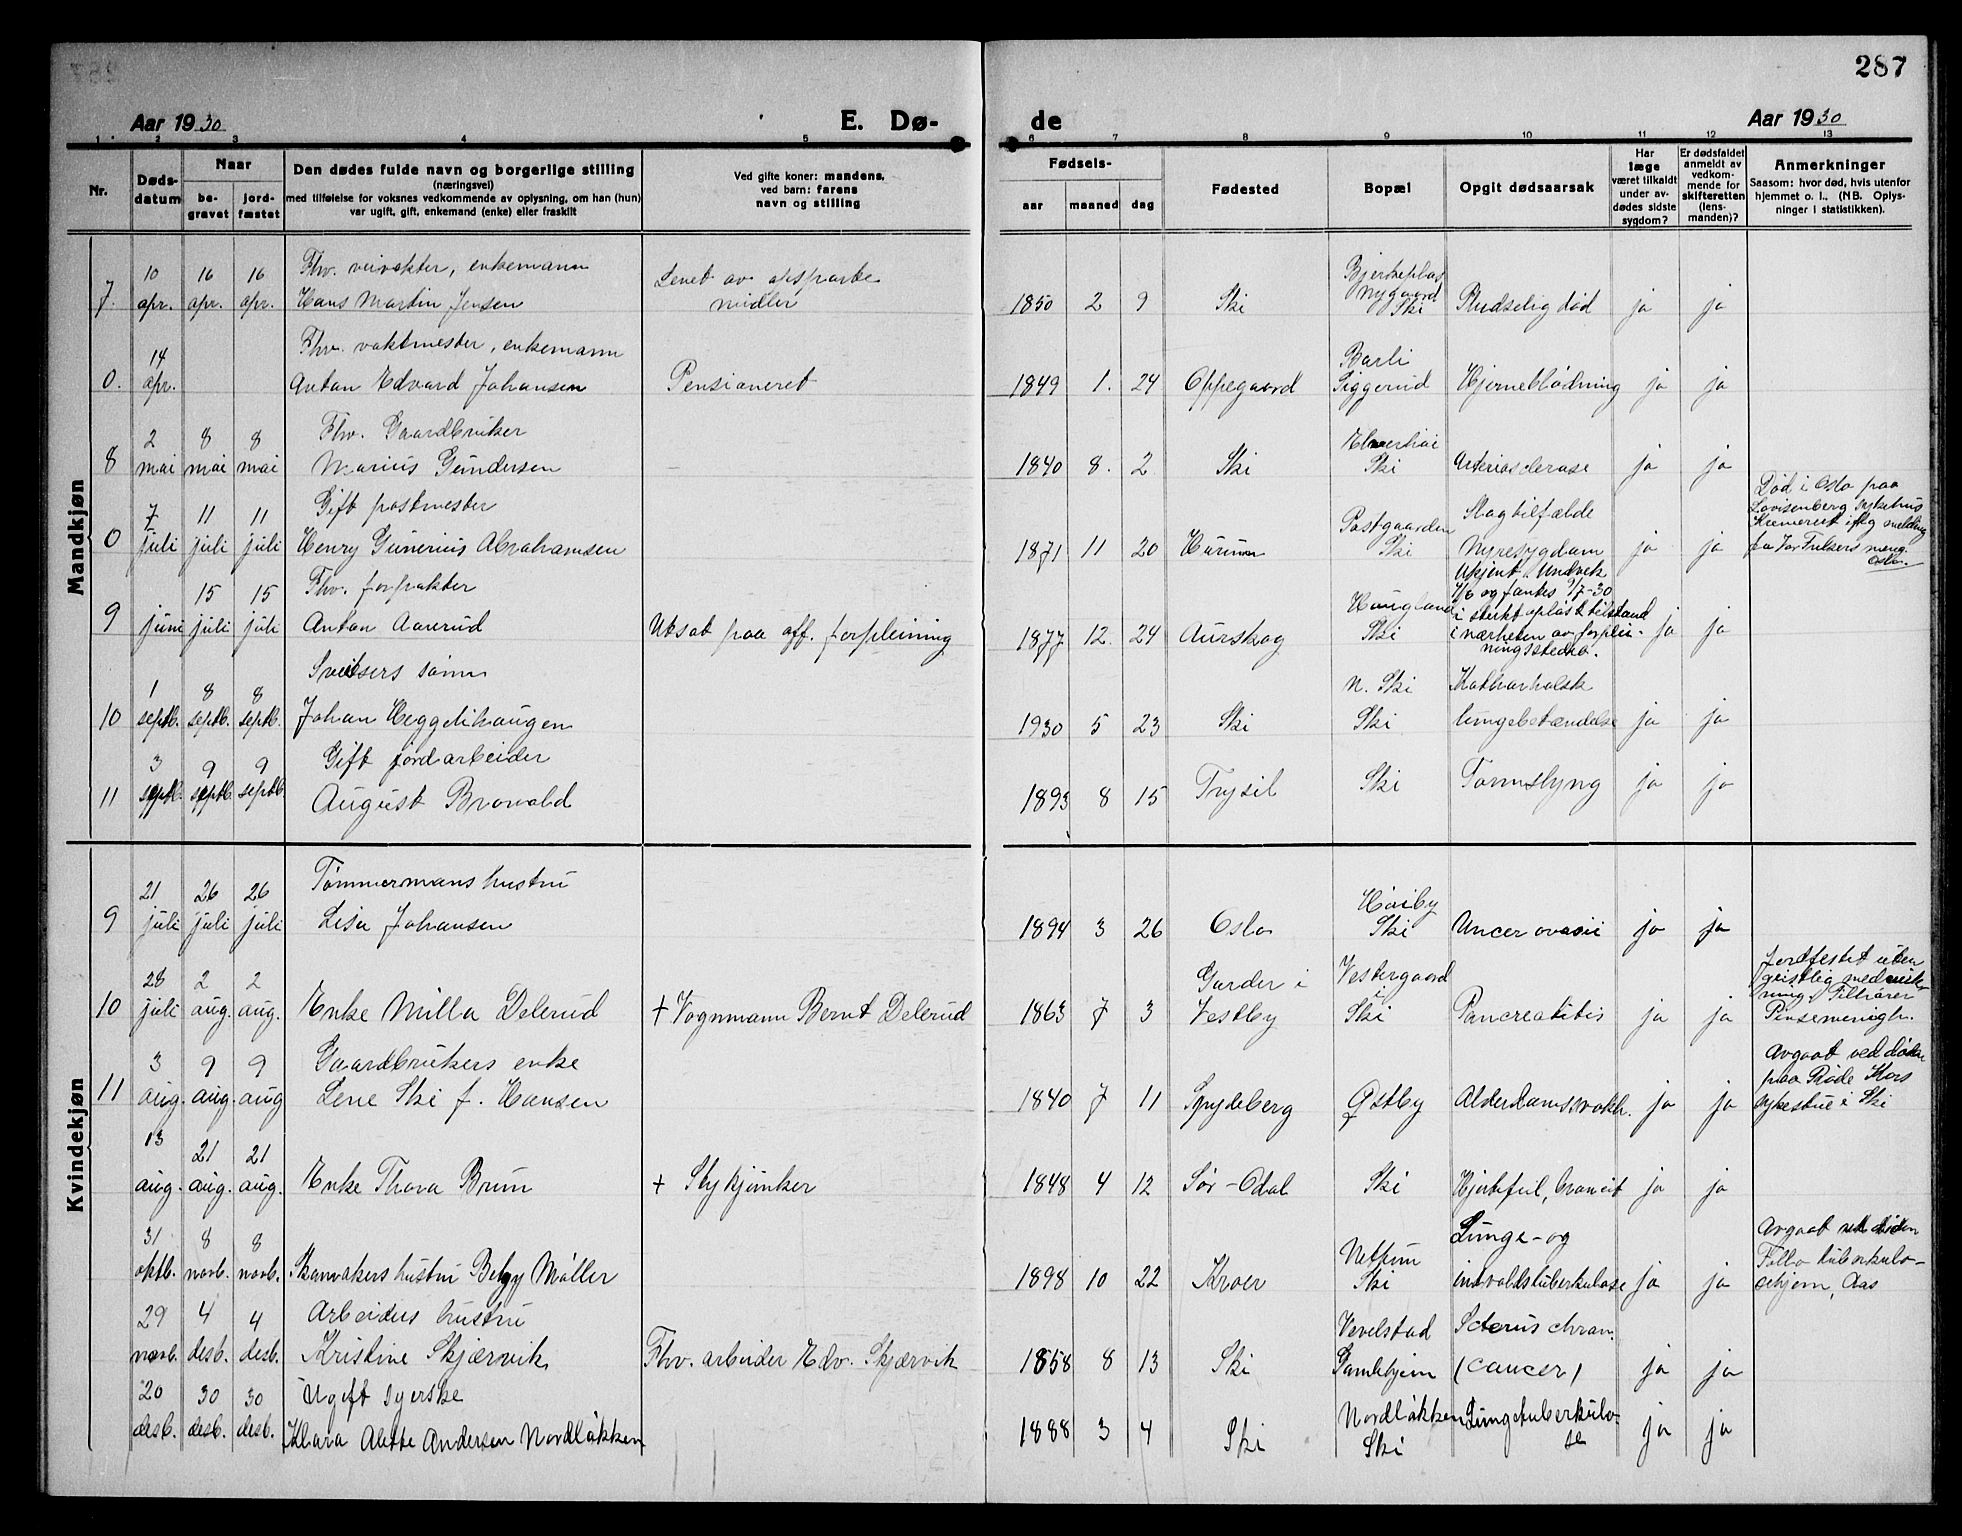 287
Aar 1930
E. Dø-
de
Aar 1930
1 2 3 4 5 6 7 8 9 10 11 12 13
Nr.
Døds-
datum
Naar
be-
gravet
jord-
fæstet
Den dødes fulde navn og borgerlige stilling
(næringsvei)
med tilføielse for voksnes vedkommende av oplysning, om han (hun)
var ugift, gift, enkemand (enke) eller fraskilt
Ved gifte koner: mandens,
ved barn: farens
navn og stilling
Fødsels-
aar
maaned
dag
Fødested
Bopæl
Opgit dødsaarsak
Har
læge
været tilkaldt
under av-
dødes sidste
sygdom?
Er dødsfaldet
anmeldt av
vedkom-
mende for
skifteretten
(lens-
manden)?
Anmerkninger
Saasom: hvor død, hvis utenfor
hjemmet o. l.. (NB. Oplys-
ninger i statistikken).
Mandkjøn
10 16 16 Fhv. veivokter, enkemann Levet av opsparte Bjerkeplas
Nygaard
7. apr. apr. apr. Hans Martin Jensen midler 1850 2 9 Ski Ski Pludselig død ja ja
14 Fhv. vaktmester, enkemann Barli
0. apr. Anton Edvard Johansen Pensioneret 1849 1. 24 Oppegaard Siggerud Hjerneblødning ja ja
2 8 8 Fhv. Gaardbruker
8 mai mai mai Marius Gundersen 1840 8. 2 Ski Ski Arteriosclerose ja ja
7 11 11 Gift postmester Postgaarden Slagtilfælde Død i Oslo paa
Lovisenberg sykehus
Kremeret iflg melding
0 juli juli juli Henry Gunerius Abrahamsen 1871 11 20 Hurum Ski Nyresygdom ja ja fra Vor Frelsers menig.
Oslo.
15 15 Fhv. forpakter Ukjent. Undvek
4/6 og fantes 9/7-30
Haugland i sterkt opløst tilstand
9 juni juli juli Anton Aarerud Utsat paa off. forpleining 1877 12. 24 Aurskog Ski i nærheten av forplei- ja ja
ningsstedet.
1 8 8 Sveitsers sønn N. Ski Katharhalsk
10 septb. septb. septb. Johan Heggelihaugen 1930 5 23 Ski Ski lungebetændelse ja ja
3 9 9 Gift jordarbeider
11 septb. septb. septb. August Brovold 1893 8 15 Trysil Ski Tarmslyng ja ja
Kvindekjøn
21 26 26 Tømmermans hustru Høiby
9 juli juli juli Lisa Johansen 1894 3 26 Oslo Ski ja ja
28 2 2 Garder i Vestergaard Jordfestet uten
geistlig medvirk-
ning. Tilhører
10 juli aug. aug. Enke Milla Delerud + Vognmann Bernt Delerud 1863 7 3 Vestby i Ski Pancreatitis ja ja Pinsemenigh.
3 9 9 Gaardbrukers enke Avgaat ved døden
paa Røde Kors
11 aug. aug. aug Lene Ski f. Hansen 1840 7 11 Spydeberg Østby Alderdomssvakh. ja ja sykestue i Ski
13 21 21
aug. aug. aug. Enke Thora Brun + Stykjunker 1848 4 12 Sør-Odal Ski Hjertefeil, broncit ja ja
31 8 8 Lunge- og Avgaat ved døden
Follo tuberkulo-
oktb. novb. novb. Skomakers hustru Betzy Møller 1898 10 22 Kroer Ski indvoldstuberkulose ja ja sehjem, Aas
29 4 4 Arbeiders hustru Vevelstad Icterus chron.
novb. desb. desb. Kristine Skjærvik Fhv. arbeider Edv. Skjærvik 1858 8 13 Ski Gamlehjem (cancer) ja ja
20 30 30 Ugift syerske Nordløkken Lungetuberkulo-
desb. desb. desb. Klara Alette Andersen Nordløkken 1888 3 4 Ski Ski se ja ja